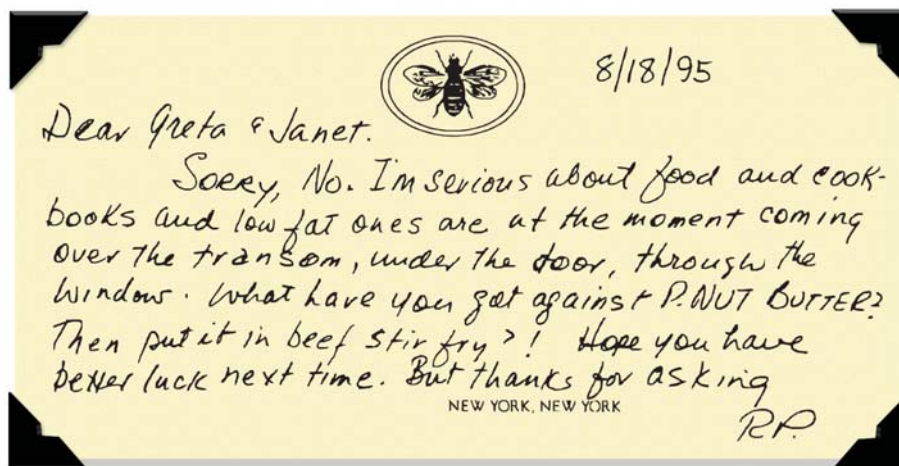 8/18/95
Dear Greta & Janet.
Sorry, No. I'm serious about food and cook-
books and low fat ones are at the moment coming
over the transom, under the door, through the
window. What have you got against P.NUT BUTTER?
Then put it in beef stir fry?! Hope you have
better luck next time. But thanks for asking
NEW YORK, NEW YORK
R.P.